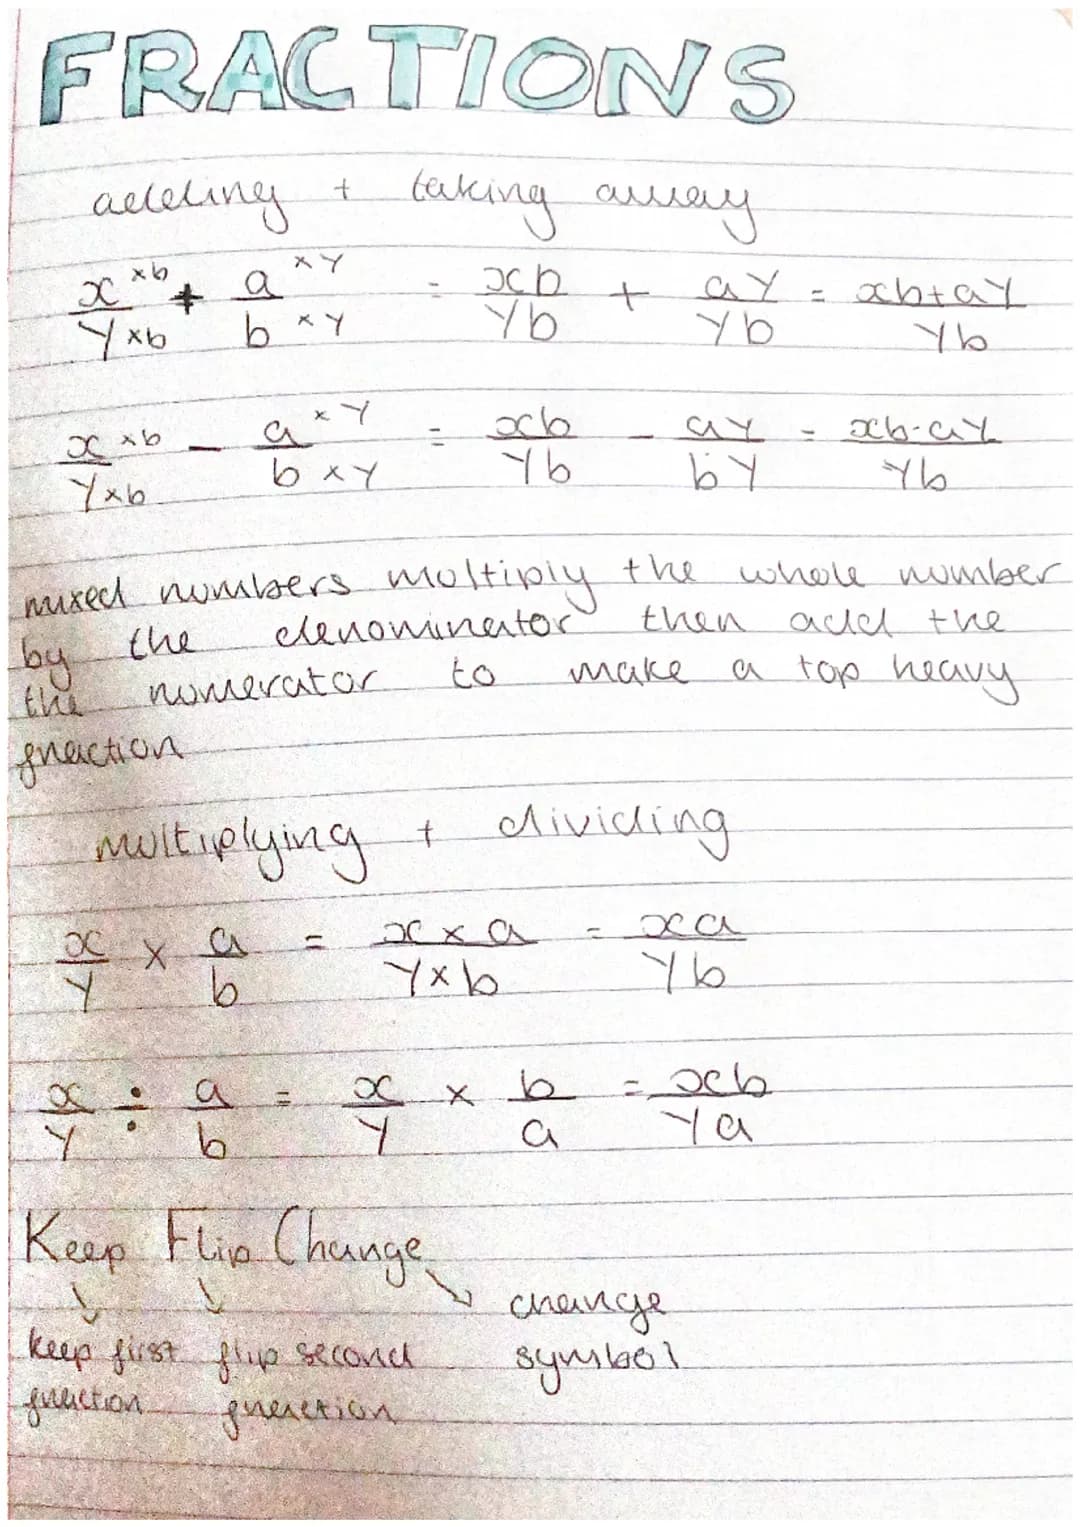 FRACTIONS
adding + taking away
x ×b / Y ×b + a ×Y / b ×Y = xb / Yb + aY / Yb = xb+aY / Yb
x ×b / Y×b - a ×Y / b ×Y = xb / Yb - aY / bY = xb-aY / Yb
mixed numbers multiply the whole number
by the denominator then add the
the numerator to make a top heavy
fraction
multiplying + dividing
x / Y × a / b = x × a / Y × b = xa / Yb
x / Y ÷ a / b = x / Y × b / a = xb / Ya
Keep Flip Change
↓ ↓ ↘ change
keep first flip second symbol
fraction fraction